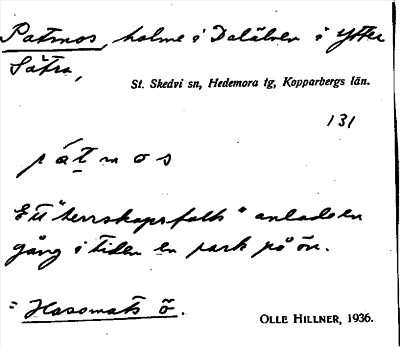 Patmos, holme i Dalälven i Ytter
Sätra,
St. Skedvi sn, Hedemora tg, Kopparbergs län.
131
pátmos
Ett "herrskapsfolk" anlade en
gång i tiden en park på ön.
= Hasomats ö.
OLLE HILLNER, 1936.